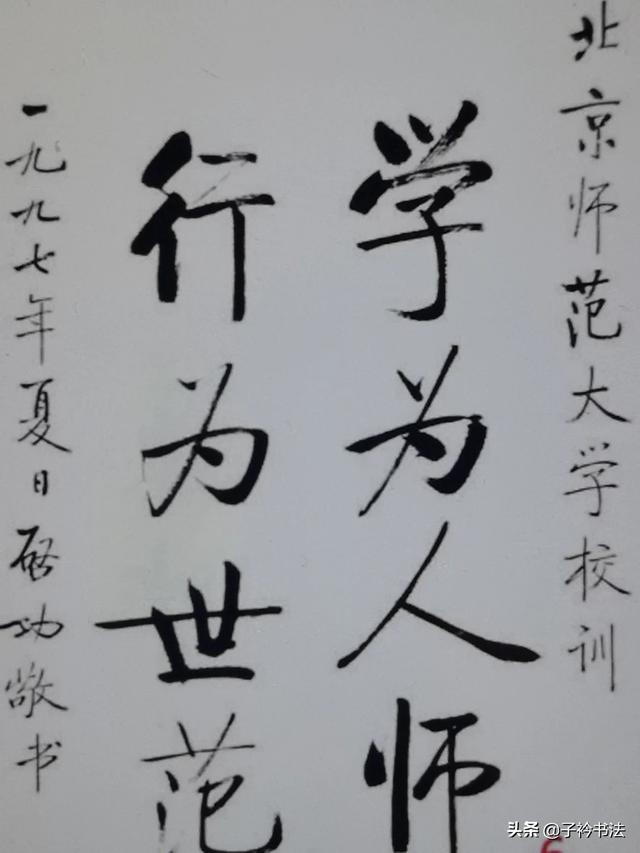 北京师范大学校训
学为人师
行为世范
一九九七年夏日启功敬书
头条 @子衿书法